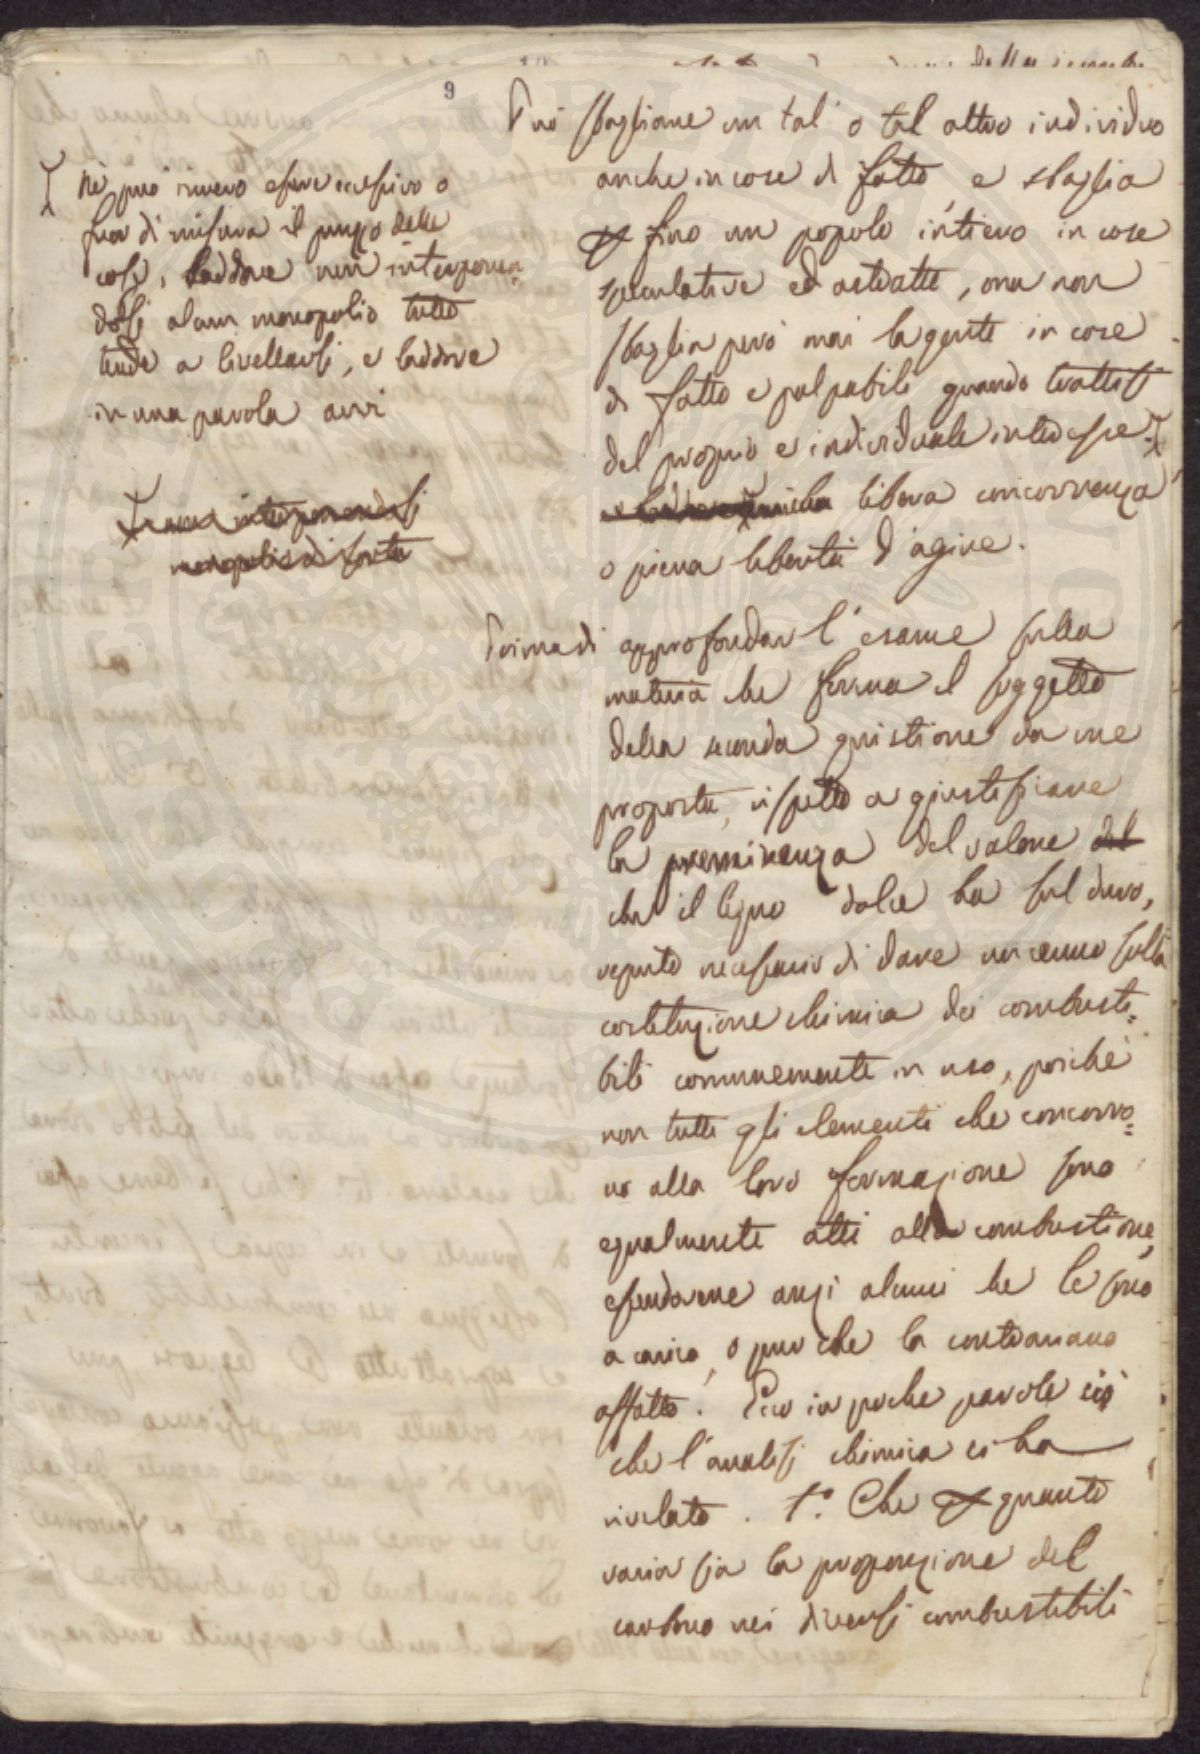 9
Può sbagliare un tal o tal altro individuo
anche in cose di fatto, e sbaglia
fino un popolo intiero in cose
speculative ed astratte, ma non
sbaglia però mai la gente in cose
di fatto e palpabili quando trattisi
del proprio e individuale interesse.
libera concorrenza
o piena libertà d'agire.
Nè può invero essere eccessivo o
fuor di misura il prezzo delle
cose, laddove non interponen=
dosi alcun monopolio tutto
tende a livellarsi, e laddove
in una parola avvi
interponendosi
monopolio di sorta
Prima di approfondar l'esame sulla
materia che forma il soggetto
della seconda quistione da me
proposta, rispetto a giustificare
la preminenza del valore del
che il legno dolce ha sul duro,
reputo necessario di dare un cenno sulla
costituzione chimica dei combusti=
bili comunemente in uso, poichè
non tutti gli elementi che concorro=
no alla loro formazione sono
egualmente atti alla combustione,
essendovene anzi alcuni che le sono
a carico, o pur che la contrariano
affatto. Ecco in poche parole ciò
che l'analisi chimica ci ha
rivelato. 1.° Che quanto
varia sia la proporzione del
carbonio nei diversi combustibili